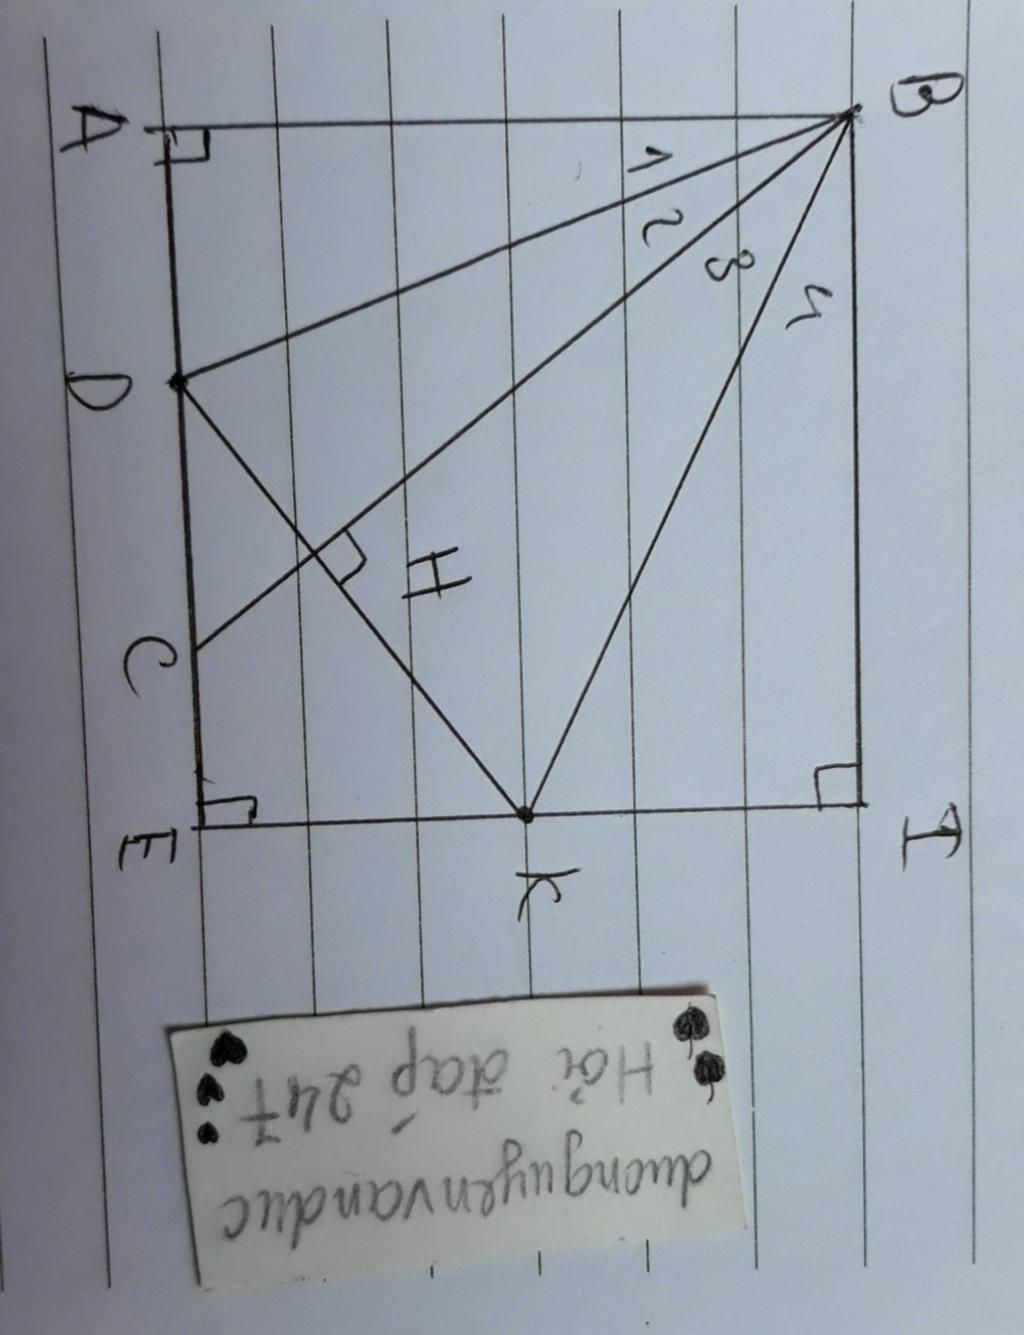 A
B
1
2
3
4
D
H
C
E
K
I
Hỏi đáp 247
duonguyenvanduc